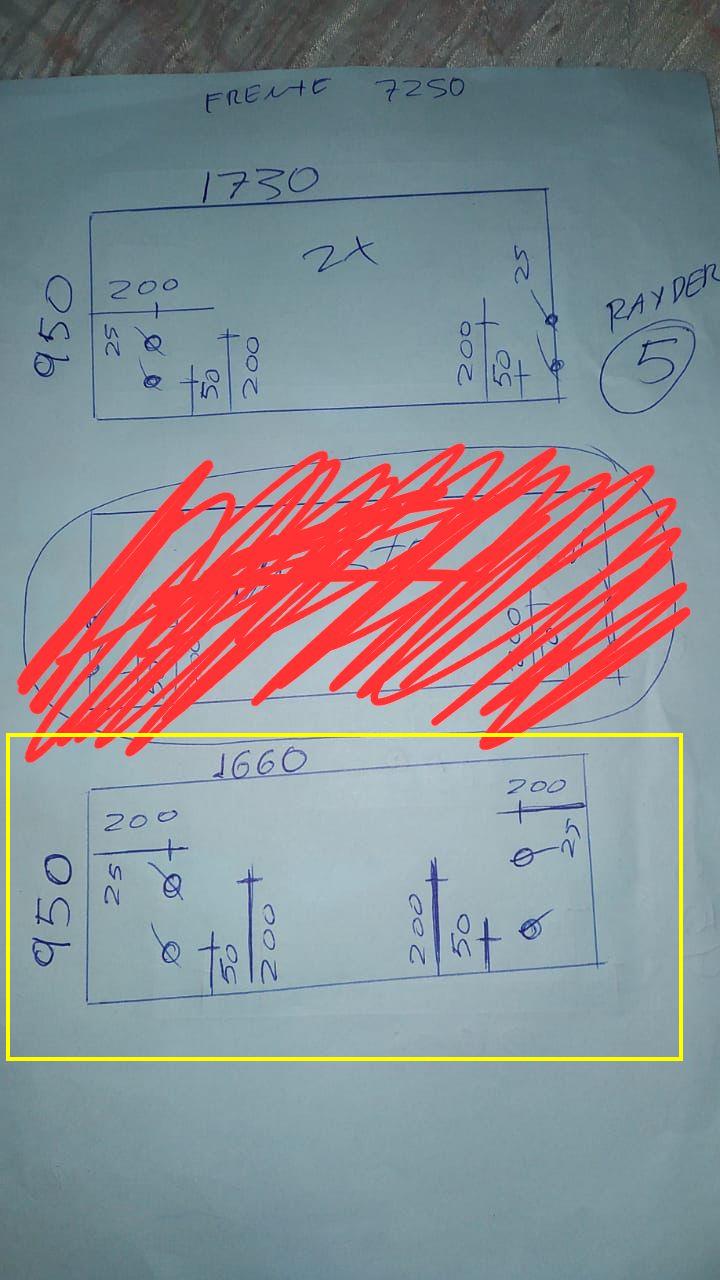 FRENTE 7250
1730
2X
950
200
25
50
200
200
50
25
RAYDER
5
1660
950
200
25
50
200
200
50
200
25